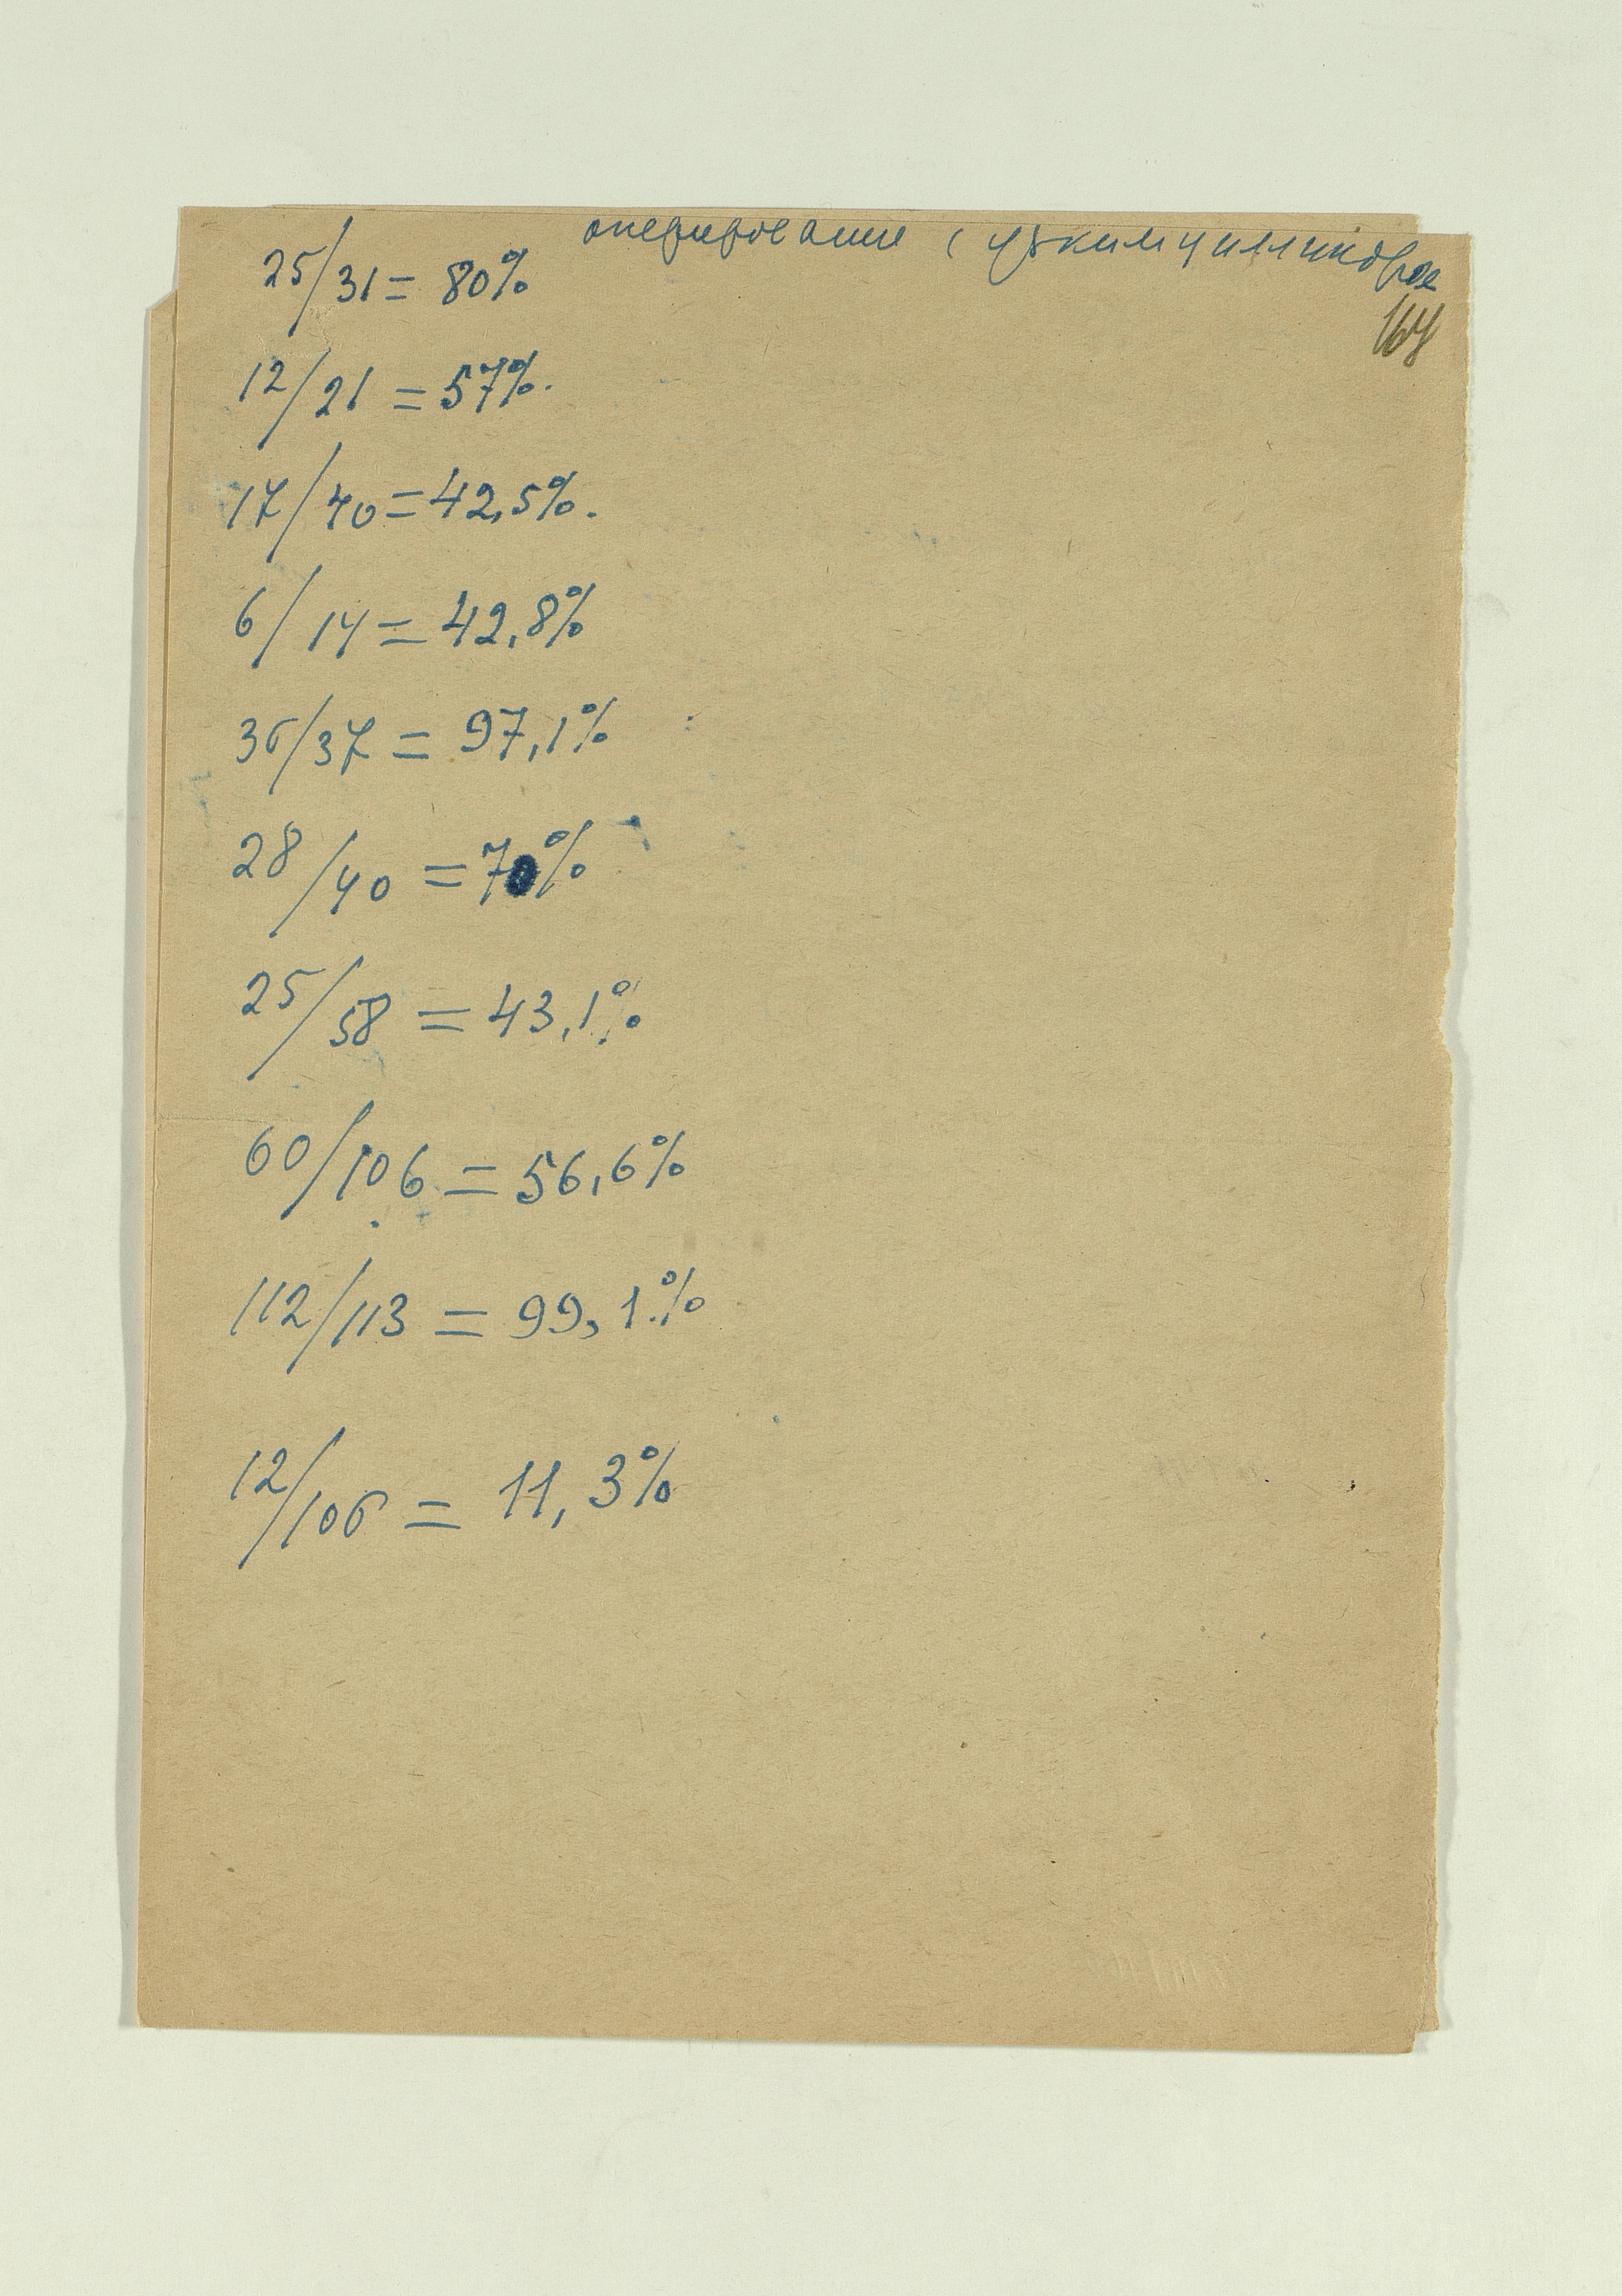 оперирование с узким цилиндром
164
25/31 = 80%
12/21 = 57%.
17/40 = 42,5%.
6/14 = 42,8%
36/37 = 97,1%
28/40 = 70%
25/58 = 43,1%
60/106 = 56,6%
112/113 = 99,1%
12/106 = 11,3%